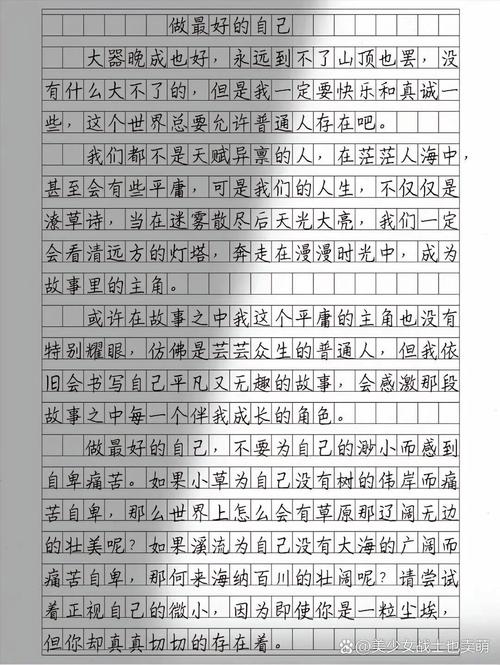 做最好的自己
大器晚成也好，永远到不了山顶也罢，没
有什么大不了的，但是我一定要快乐和真诚一
些，这个世界总要允许普通人存在吧。
我们都不是天赋异禀的人，在茫茫人海中，
甚至会有些平庸，可是我们的人生，不仅仅是
潦草诗，当在迷雾散尽后天光大亮，我们一定
会看清远方的灯塔，奔走在漫漫时光中，成为
故事里的主角。
或许在故事之中我这个平庸的主角也没有
特别耀眼，仿佛是芸芸众生的普通人，但我依
旧会书写自己平凡又无趣的故事，会感激那段
故事之中每一个伴我成长的角色。
做最好的自己，不要为自己的渺小而感到
自卑痛苦。如果小草为自己没有树的伟岸而痛
苦自卑，那么世界上怎么会有草原那辽阔无边
的壮美呢？如果溪流为自己没有大海的广阔而
痛苦自卑，那何来海纳百川的壮阔呢？请尝试
着正视自己的微小，因为即使你是一粒尘埃，
但你却真真切切的存在着。
@美少女战士也卖萌